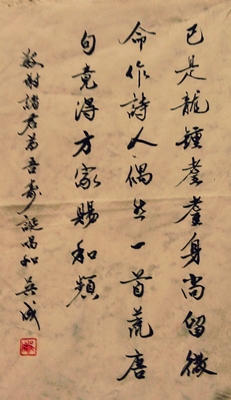 已是龍鍾耄耋身尚留微
命作詩人偶然一首荒唐
句竟得方家賜和頻
敬謝諸君為吾壽誕唱和